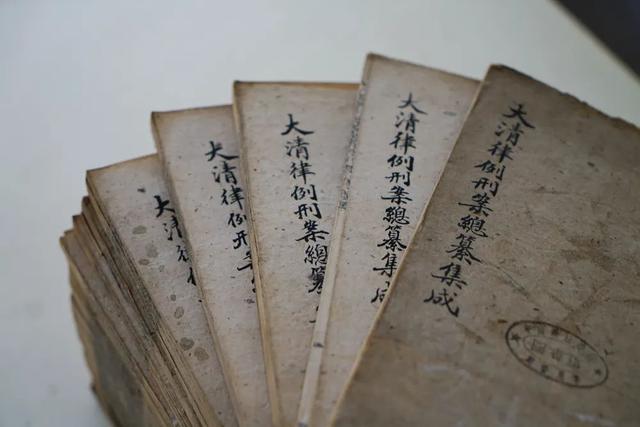 大清律
大清律例刑
大清律例刑案總纂
大清律例刑案總纂集成
大清律例刑案總纂集成